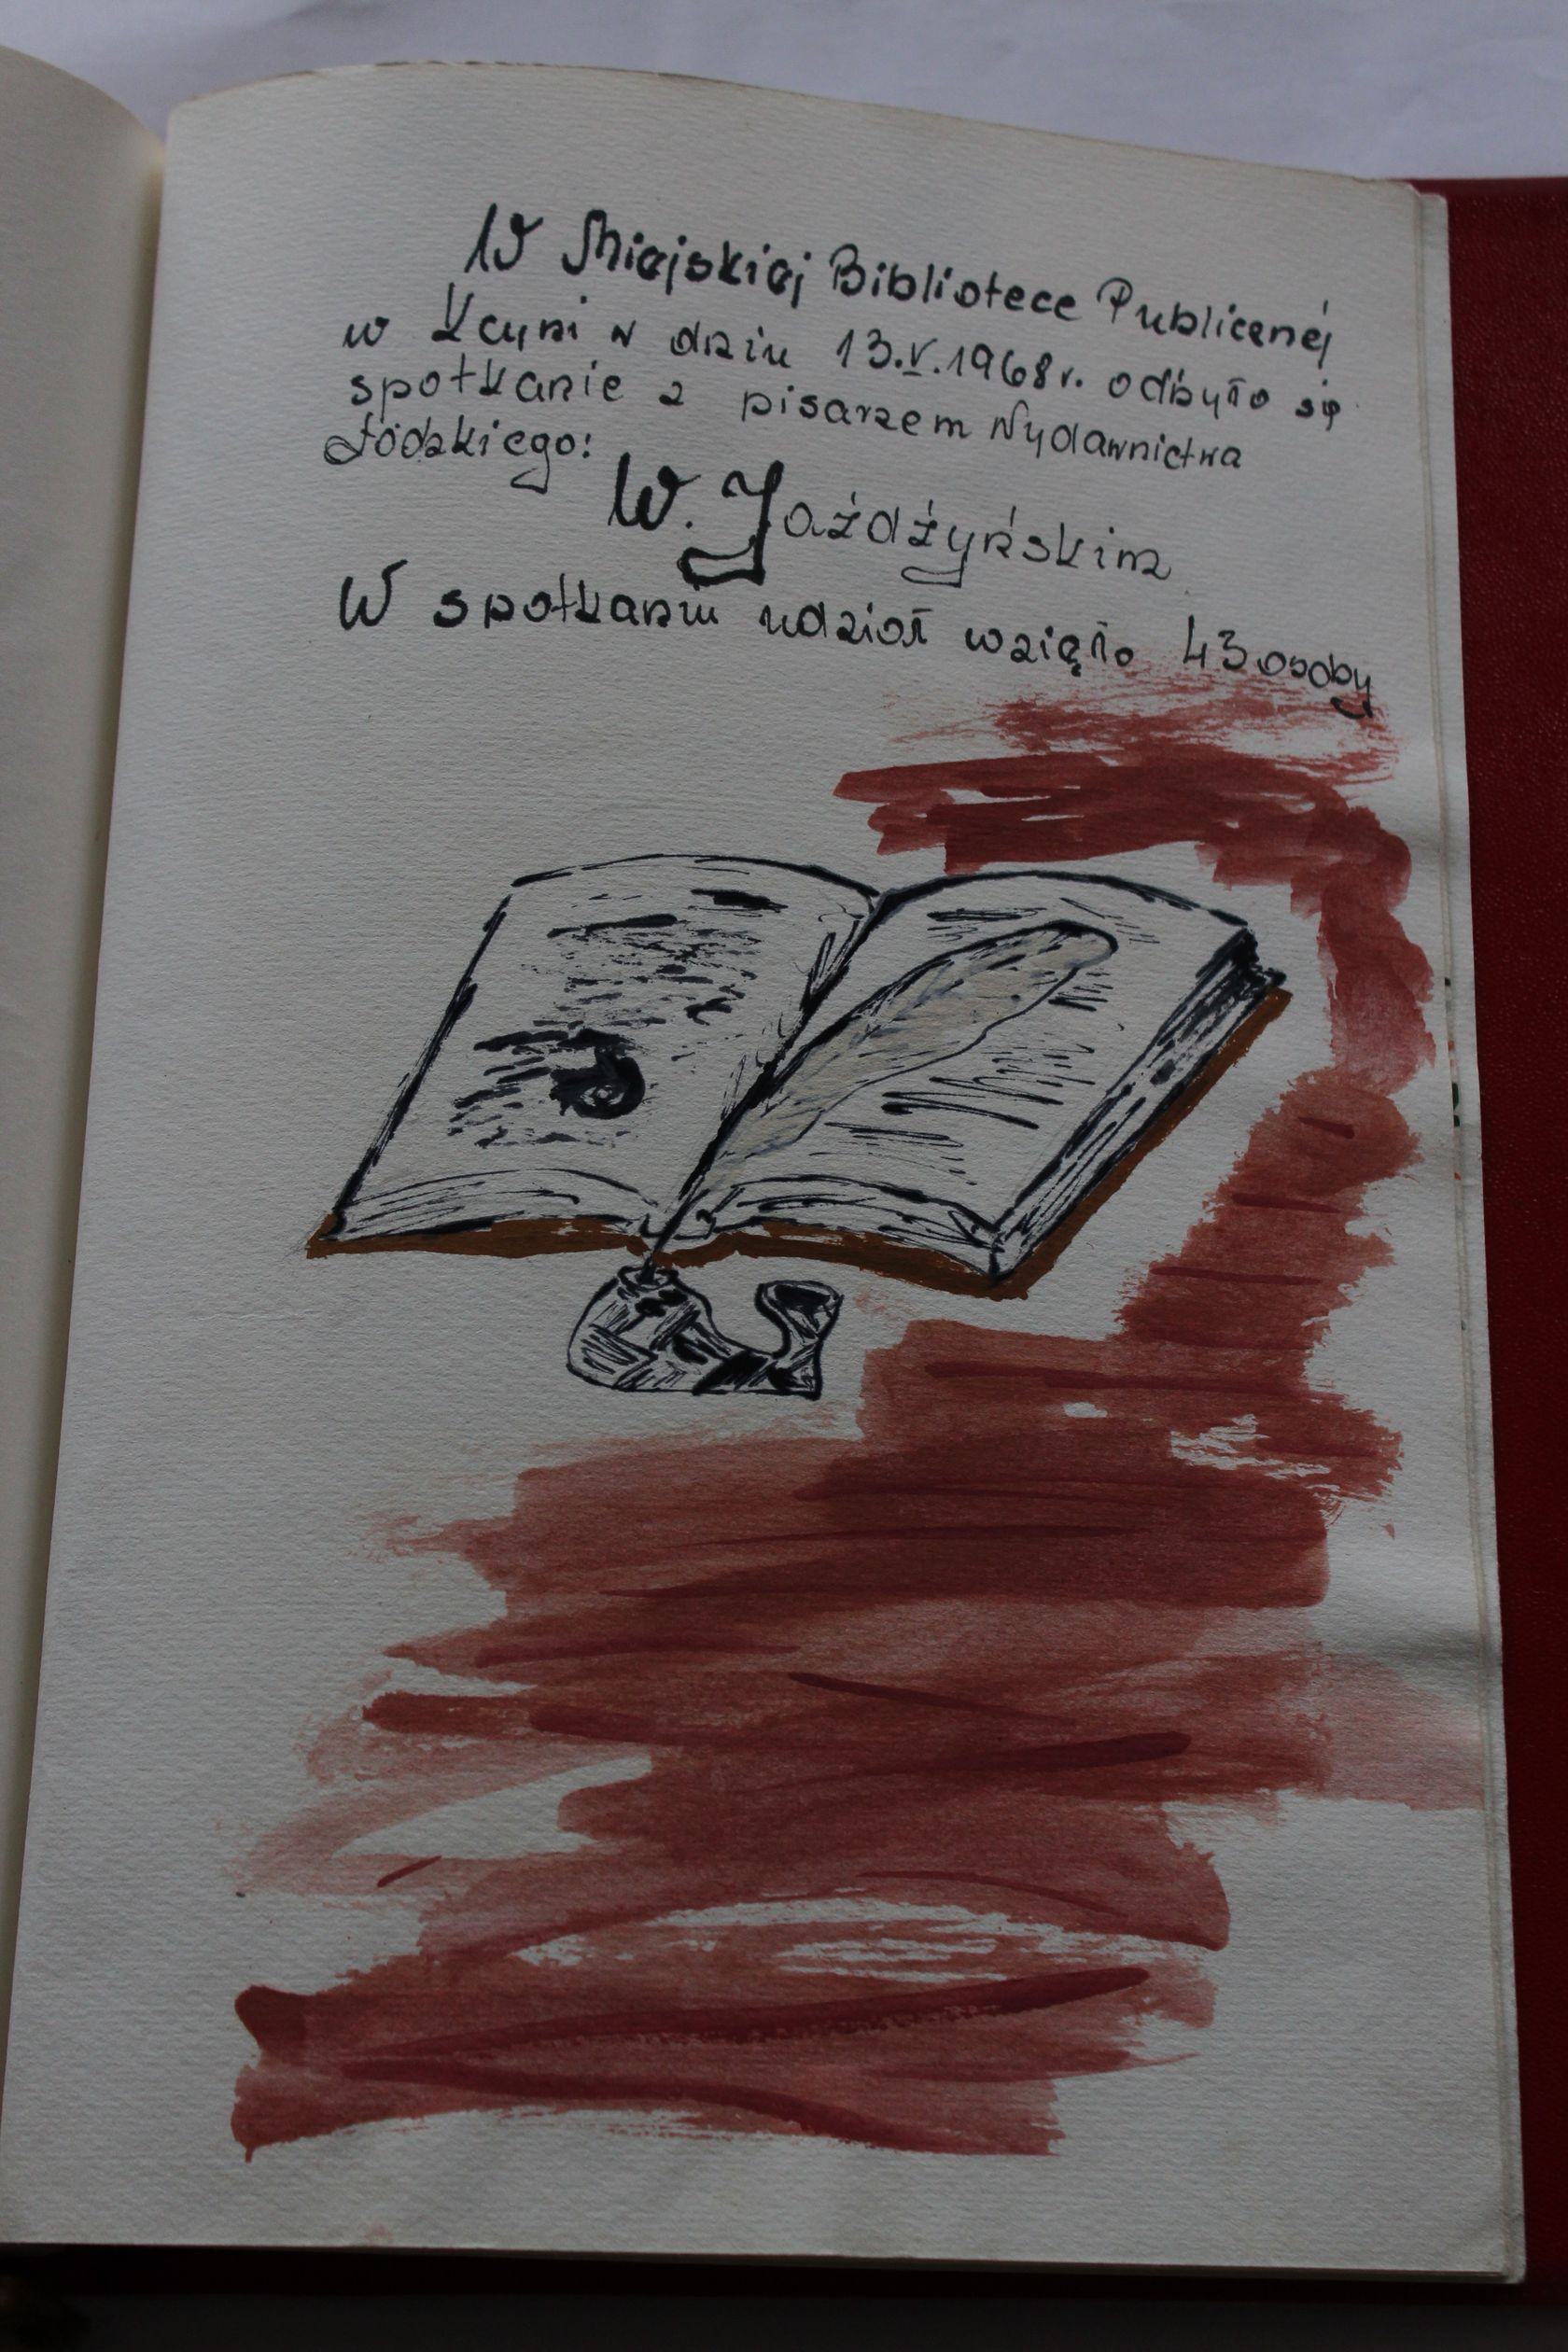 W Miejskiej Bibliotece Publicznej
w Kcyni w dniu 13.V.1968r. odbyło się
spotkanie z pisarzem Wydawnictwa
Łódzkiego:
W. Jażdżyńskim
W spotkaniu udział wzięło 43 osoby